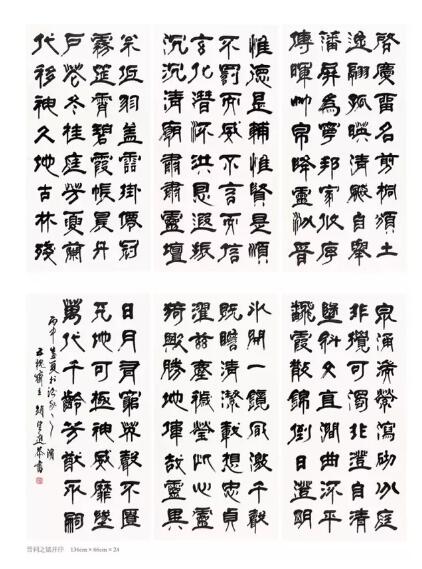 啓慶留名剪桐頒土
逸翮孤映清飆自舉
潘屏為寧邦家攸序
傳暉竹帛降靈汾晉
惟德是輔惟賢是順
不罰而威不言而信
玄化潛流洪恩遐振
沉沉清廟肅肅靈壇
松低羽蓋雲掛僊冠
霧筵霄碧霞帳晨丹
戶花冬桂庭芳夏蘭
代移神久地古林殘
泉涌湍縈瀉砌分庭
非攪可濁非澄自清
墜斜文直澗曲流平
翻霞散錦倒日澄明
冰開一鏡風激千聲
既瞻清潔載想忠貞
濯茲塵穢瑩此心靈
猗歟勝地偉哉靈異
日月有窮英聲不匱
天地可極神威靡墜
萬代千齡芳猷永嗣
丙申盛夏
晋祠之铭并序 136cm×66cm×24